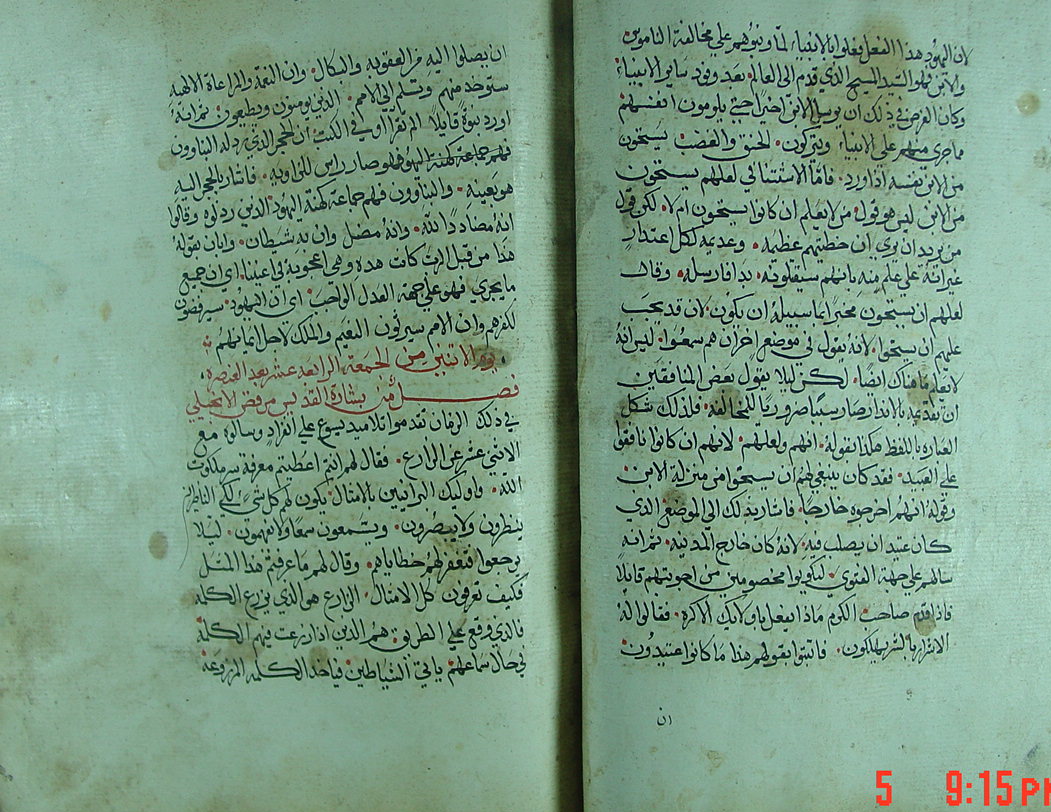 لان اليهود هذا الفعل فعلوا بالانبياء لما وبنوهم على مخالفة الناموس
والابن فهو السيد المسيح الذي قدم الى العالم بعد ورود ساير الانبياء
وكان الغرض في ذلك ان يوسل الابن اخيرا حتى يلومون انفسهم
مما جرى منهم على الانبياء ويتركون الحنق والغضب يستحون
من الابن نفسه اذا ورد فاما الاستثنا في لعلهم يستحيون
من الابن ليس هو قول من لا يعلم ان كانوا يستحيون ام لا لكن قول
من يريد ان يري ان خطيتهم عظيمه وعديمه لكل اعتذار
غير انه على علم منه بانهم سيقتلونه بدا فارسله وقال
لعلهم ان يستحيون مخبرا بما سبيله ان يكون لان قد يجب
عليهم ان يستحيوا لانه يقول في موضع اخر ان هم سمعوا ليس انه
لا يعلم ما هناك ايضا لكن ليلا يقول بعض المنافقين
ان تقديمه بالانذار صار سببا ضروريا للمخالفه فلذلك شكل
العباره باللفظ هكذا بقوله انهم ولعلهم لانهم ان كانوا نافقوا
على العبيد فقد كان ينبغي لهم ان يستحيوا من منزلة الابن
وقوله انهم اخرجوه خارجا فاشار بذلك الى الموضع الذي
كان عتيد ان يصلب فيه لانه كان خارج المدينه ثم انه
سالهم على جهة الفتوى ليكونوا مخصومين من اجوبتهم قايلا
فاذا قدم صاحب الكرم ماذا يفعل باولايك الاكره فقالوا له
الاشرار بالشر يهلكون فاثبتوا بقولهم هذا ما كانوا عتيدون
ان
ان يصلوا اليه من العقوبه والنكال وان النعمه والمراعاة الالهيه
ستوخذ منهم وتسلم الى الامم الذين يومنون ويطيعون ثم انه
اورد نبوة قايلا الم تقراوا في الكتب ان الحجر الذي رذله البناوون
هو صار راس للزاويه فاشار بالحجر اليه
هو بعينه والبناوون فهم جماعة كهنة اليهود الذين رذلوه وقالوا
انه مضادا لله وانه مضل وان به شيطان وابان بقوله
هذا من قبل الرب كانت هذه وهي اعجوبه في اعيننا اي ان جميع
ما يجري فهو على جهة العدل الواجب اي ان اليهود سيرفضون
لكفرهم وان الامم سيرثون النعيم والملك لاجل ايمانهم
يوم الاثنين من الجمعة الرابعه عشر بعد العنصره
فصل من بشارة القديس مرقص الانجيلي
في ذلك الزمان تقدموا تلاميذ يسوع على انفراد وسالوه مع
الاثني عشر عن الزارع فقال لهم انتم اعطيتم معرفة سر ملكوت
الله فاوليك البرانيين بالامثال يكون لهم كل شي لكي الناظرين
ينظرون ولا يبصرون ويسمعون سمعا ولا يفهمون ليلا
يرجعوا فتغفر لهم خطاياهم وقال لهم ما عرفتم هذا المثل
فكيف تعرفون كل الامثال الزارع هو الذي يزرع الكلمه
فالذي وقع على الطريق هم الذين اذا زرعت فيهم الكلمه
في حال سماعهم ياتي الشياطين فياخذ الكلمه المزروعه
5 9:15 PM